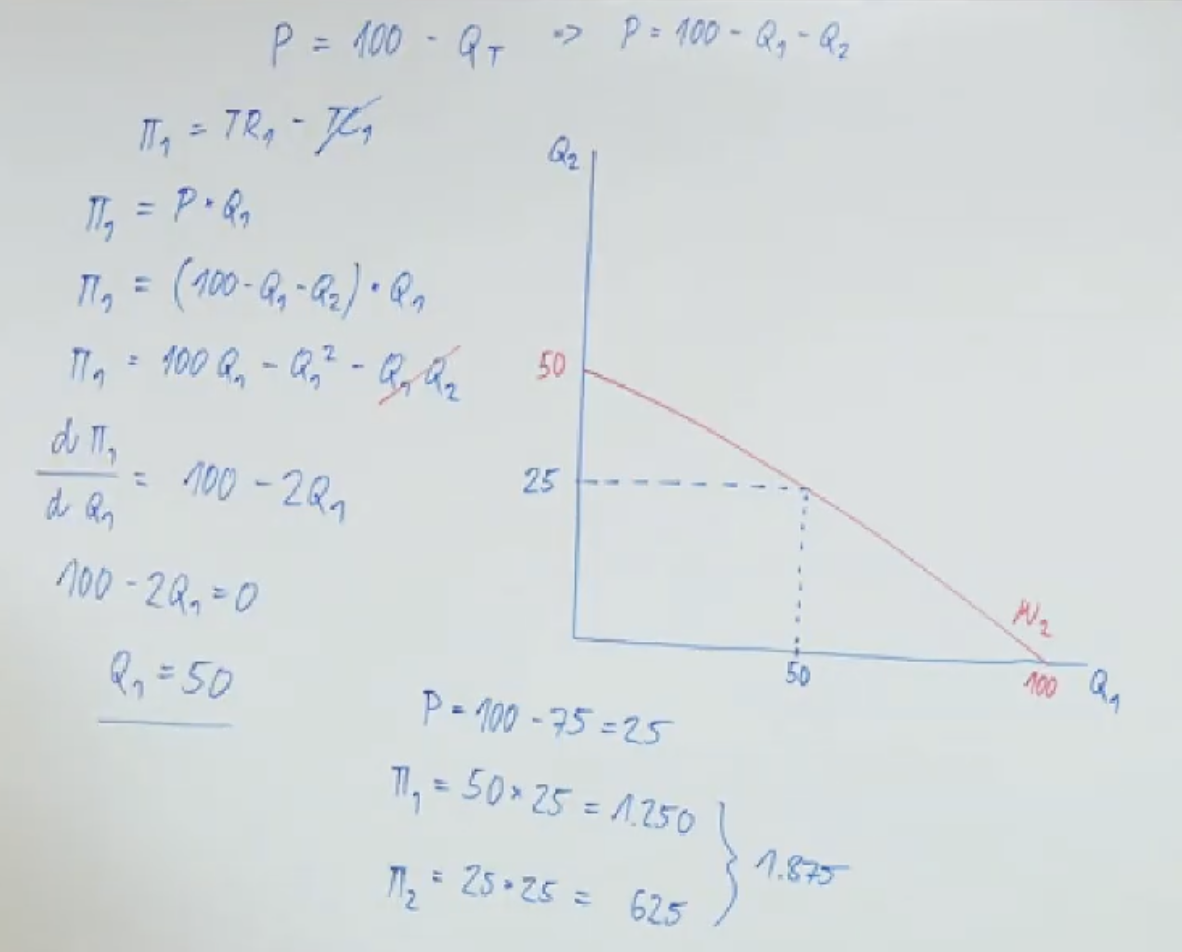 P = 100 - Q_T => P = 100 - Q₁ - Q₂
Π₁ = TR₁ - TC₁
Π₁ = P · Q₁
Π₁ = (100 - Q₁ - Q₂) · Q₁
Π₁ = 100 Q₁ - Q₁² - Q₁ Q₂
dΠ₁
dQ₁
= 100 - 2Q₁
100 - 2Q₁ = 0
Q₁ = 50
Q₂
50
25
50
100
Q₁
P = 100 - 75 = 25
Π₁ = 50 × 25 = 1.250
Π₂ = 25 · 25 = 625
} 1.875